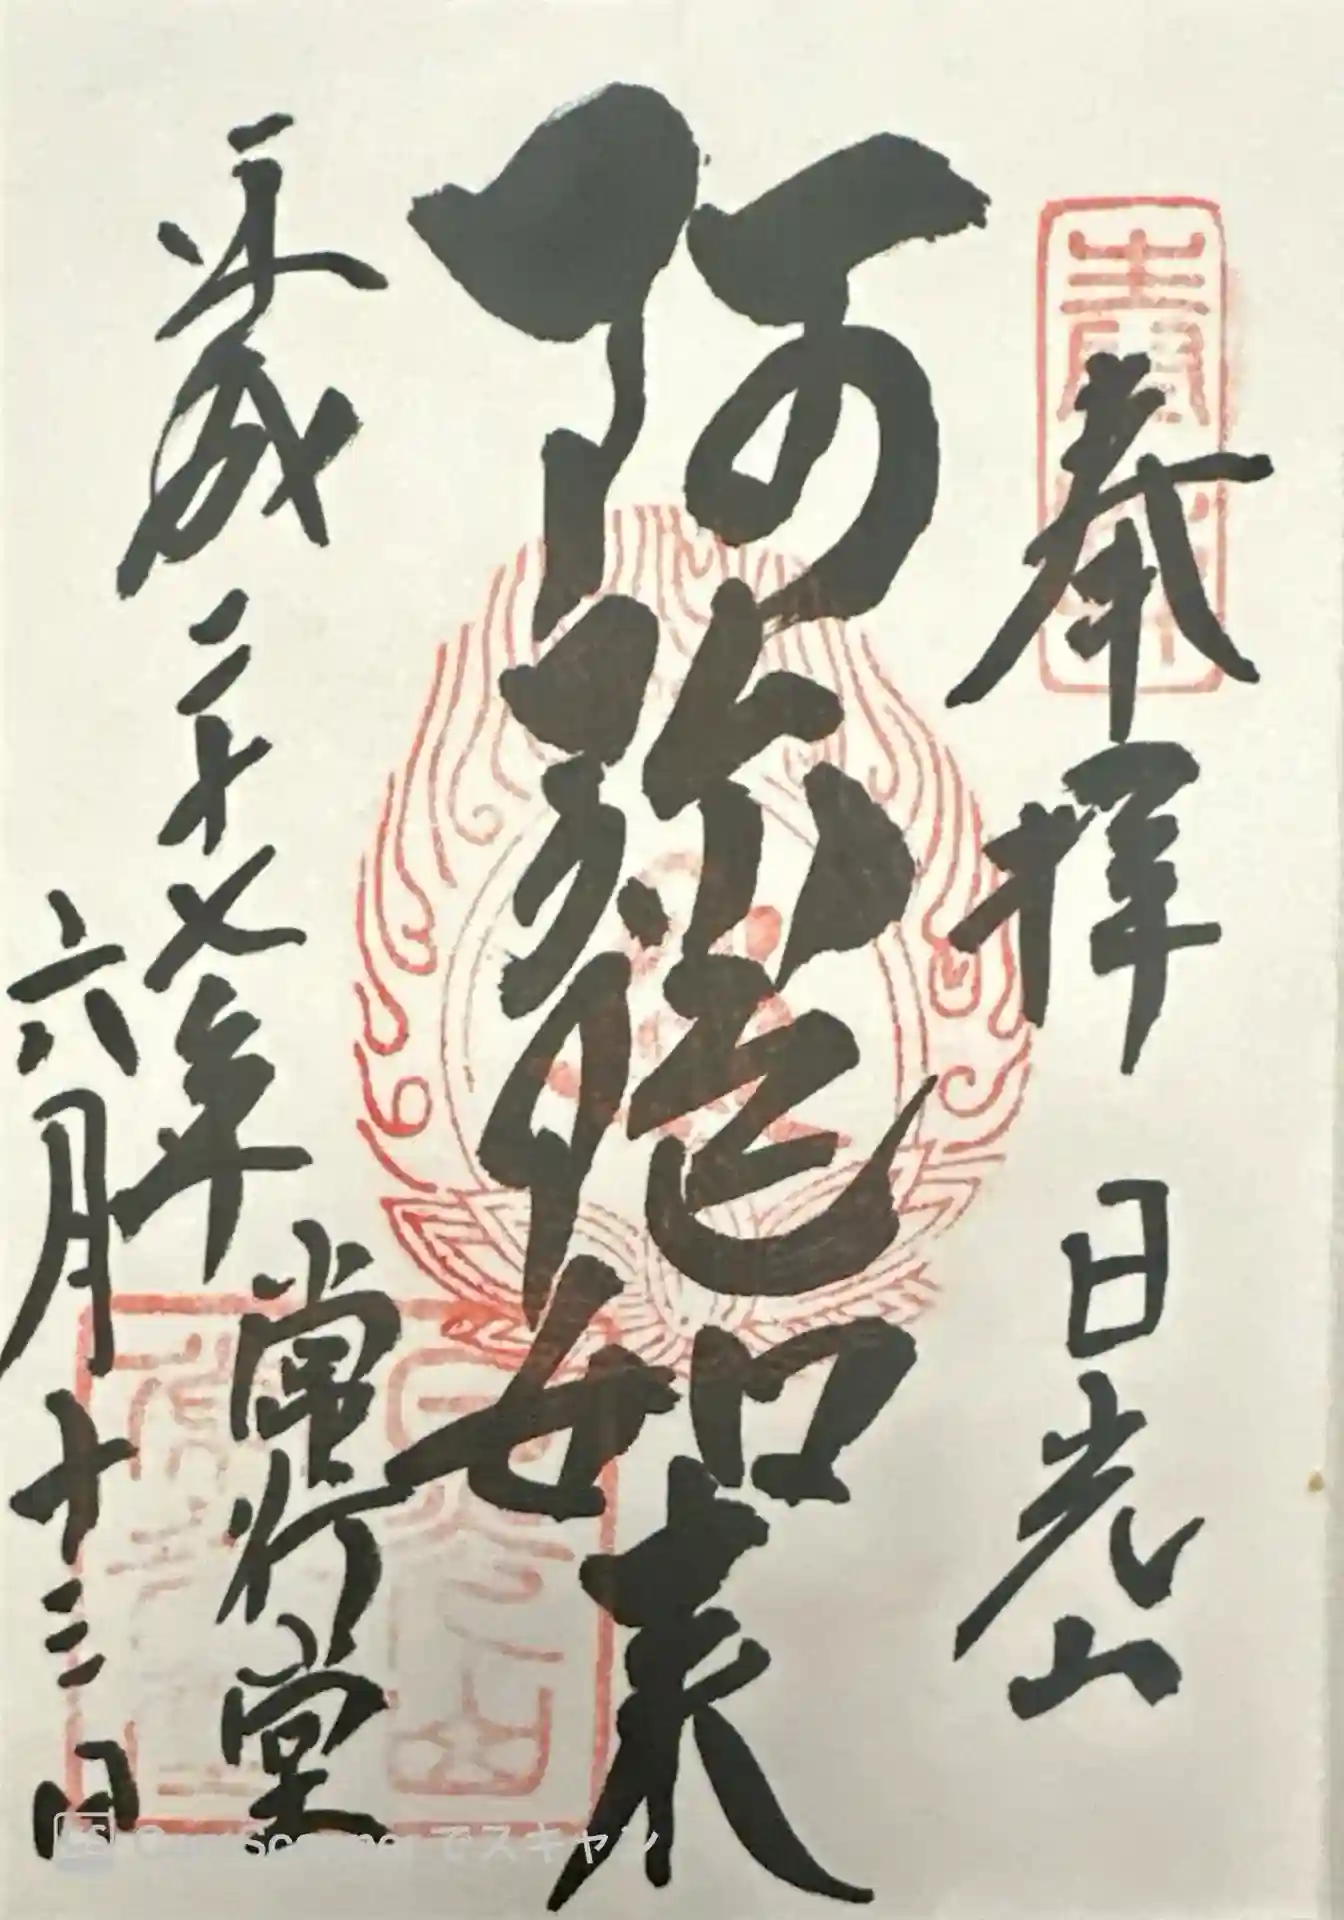 奉拝 日光山
阿弥陀如来
平成二十七年
常行堂
六月十三日
CamScannerでスキャン